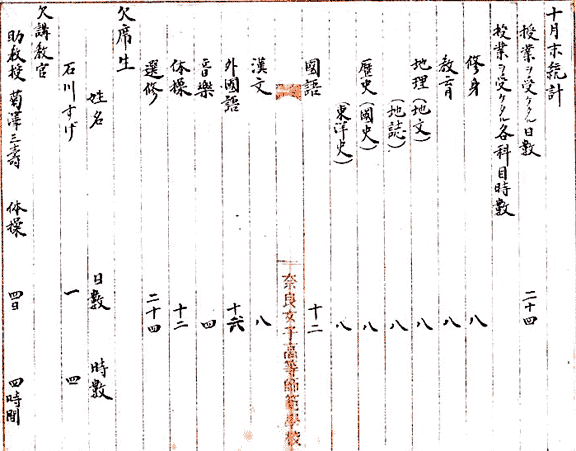 十月末統計
授業ヲ受ケタル日數 二十四
授業ヲ受ケタル各科目時數
修身 八
教育 八
地理(地文) 八
(地誌) 八
歴史(國史) 八
(東洋史) 八
國語 十二
奈良女子高等師範學校
漢文 八
外國語 十六
音樂 四
体操 十二
選修 二十四
欠席生
姓名 日數 時數
石川すげ 一 四
欠講教官
助教授 菊澤三壽 体操 四日 四時間